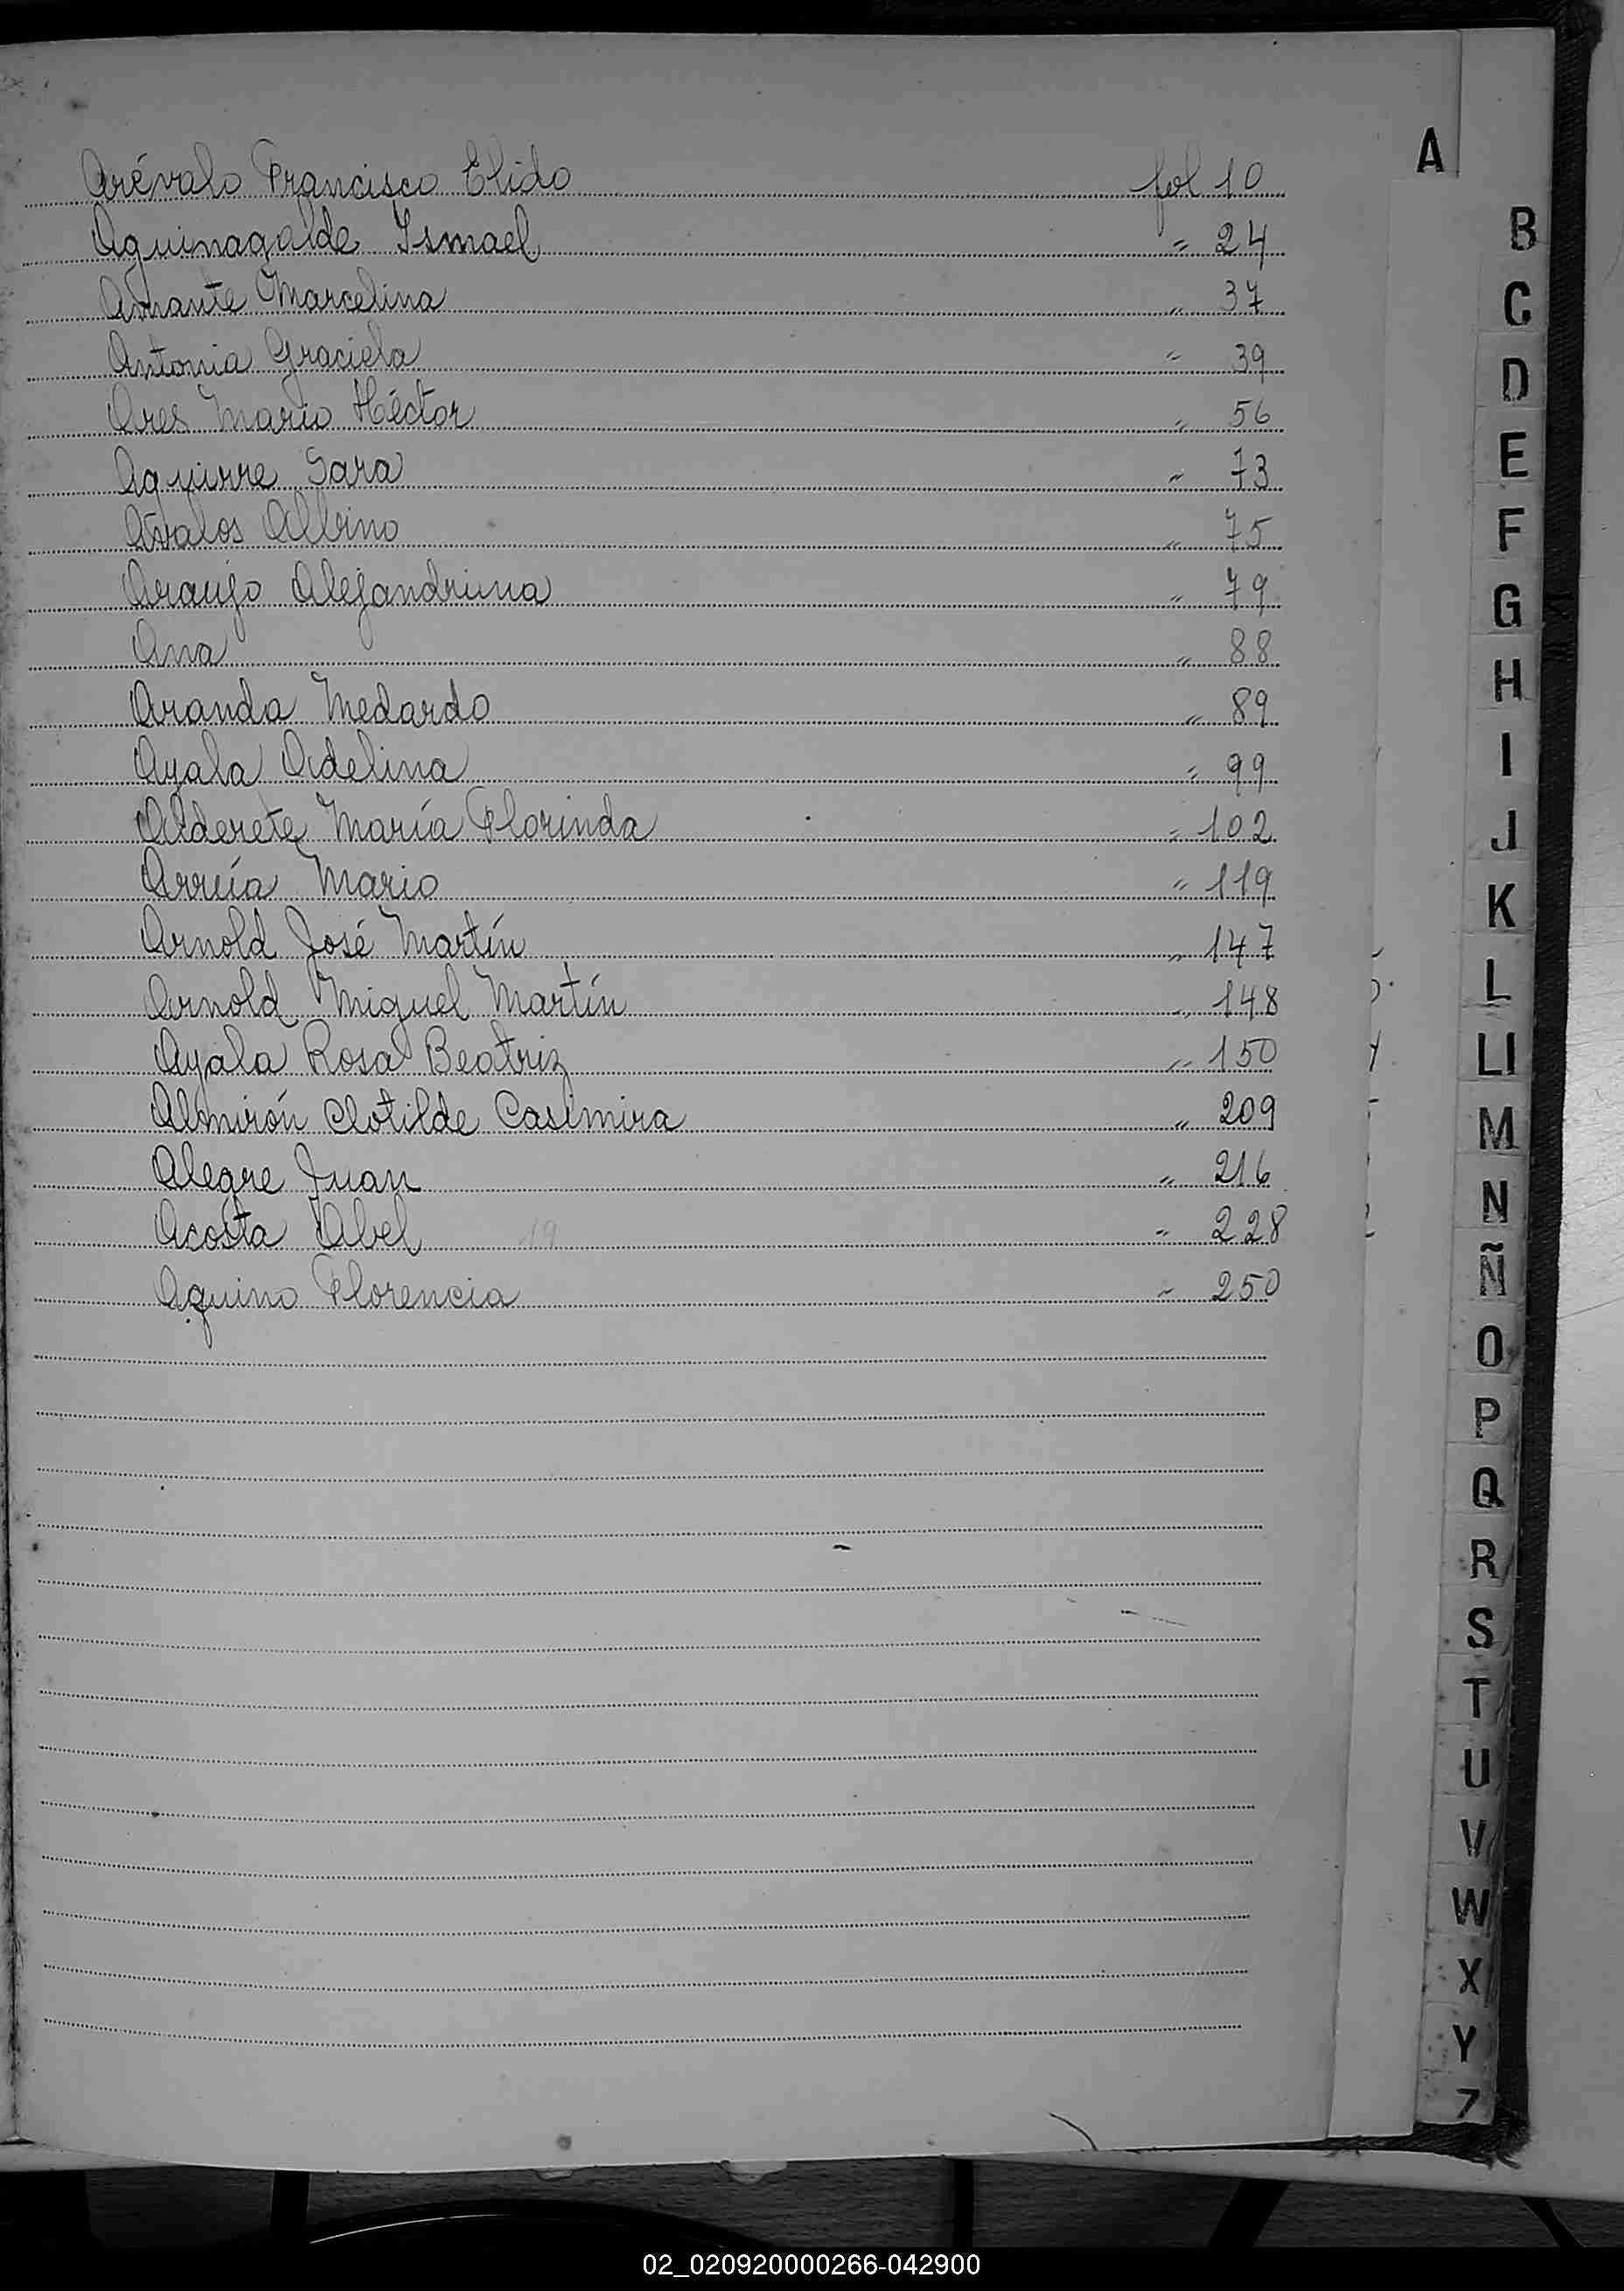 A
Arévalo Francisco Elido fol 10
Aguinagalde Ismael " 24
Amante Marcelina " 37
Antonia Graciela " 39
Ares Mario Héctor " 56
Aguirre Sara " 73
Ávalos Albino " 75
Araujo Alejandrina " 79
Ana " 88
Aranda Medardo " 89
Ayala Adelina " 99
Alderete María Florinda " 102
Arrúa Mario " 119
Arnold José Martín " 147
Arnold Miguel Martín " 148
Ayala Rosa Beatriz " 150
Almirón Clotilde Casimira " 209
Alegre Juan " 216
Acosta Abel 19 " 228
Aquino Florencia " 250
B
C
D
E
F
G
H
I
J
K
L
Ll
M
N
Ñ
O
P
Q
R
S
T
U
V
W
X
Y
Z
02_020920000266-042900